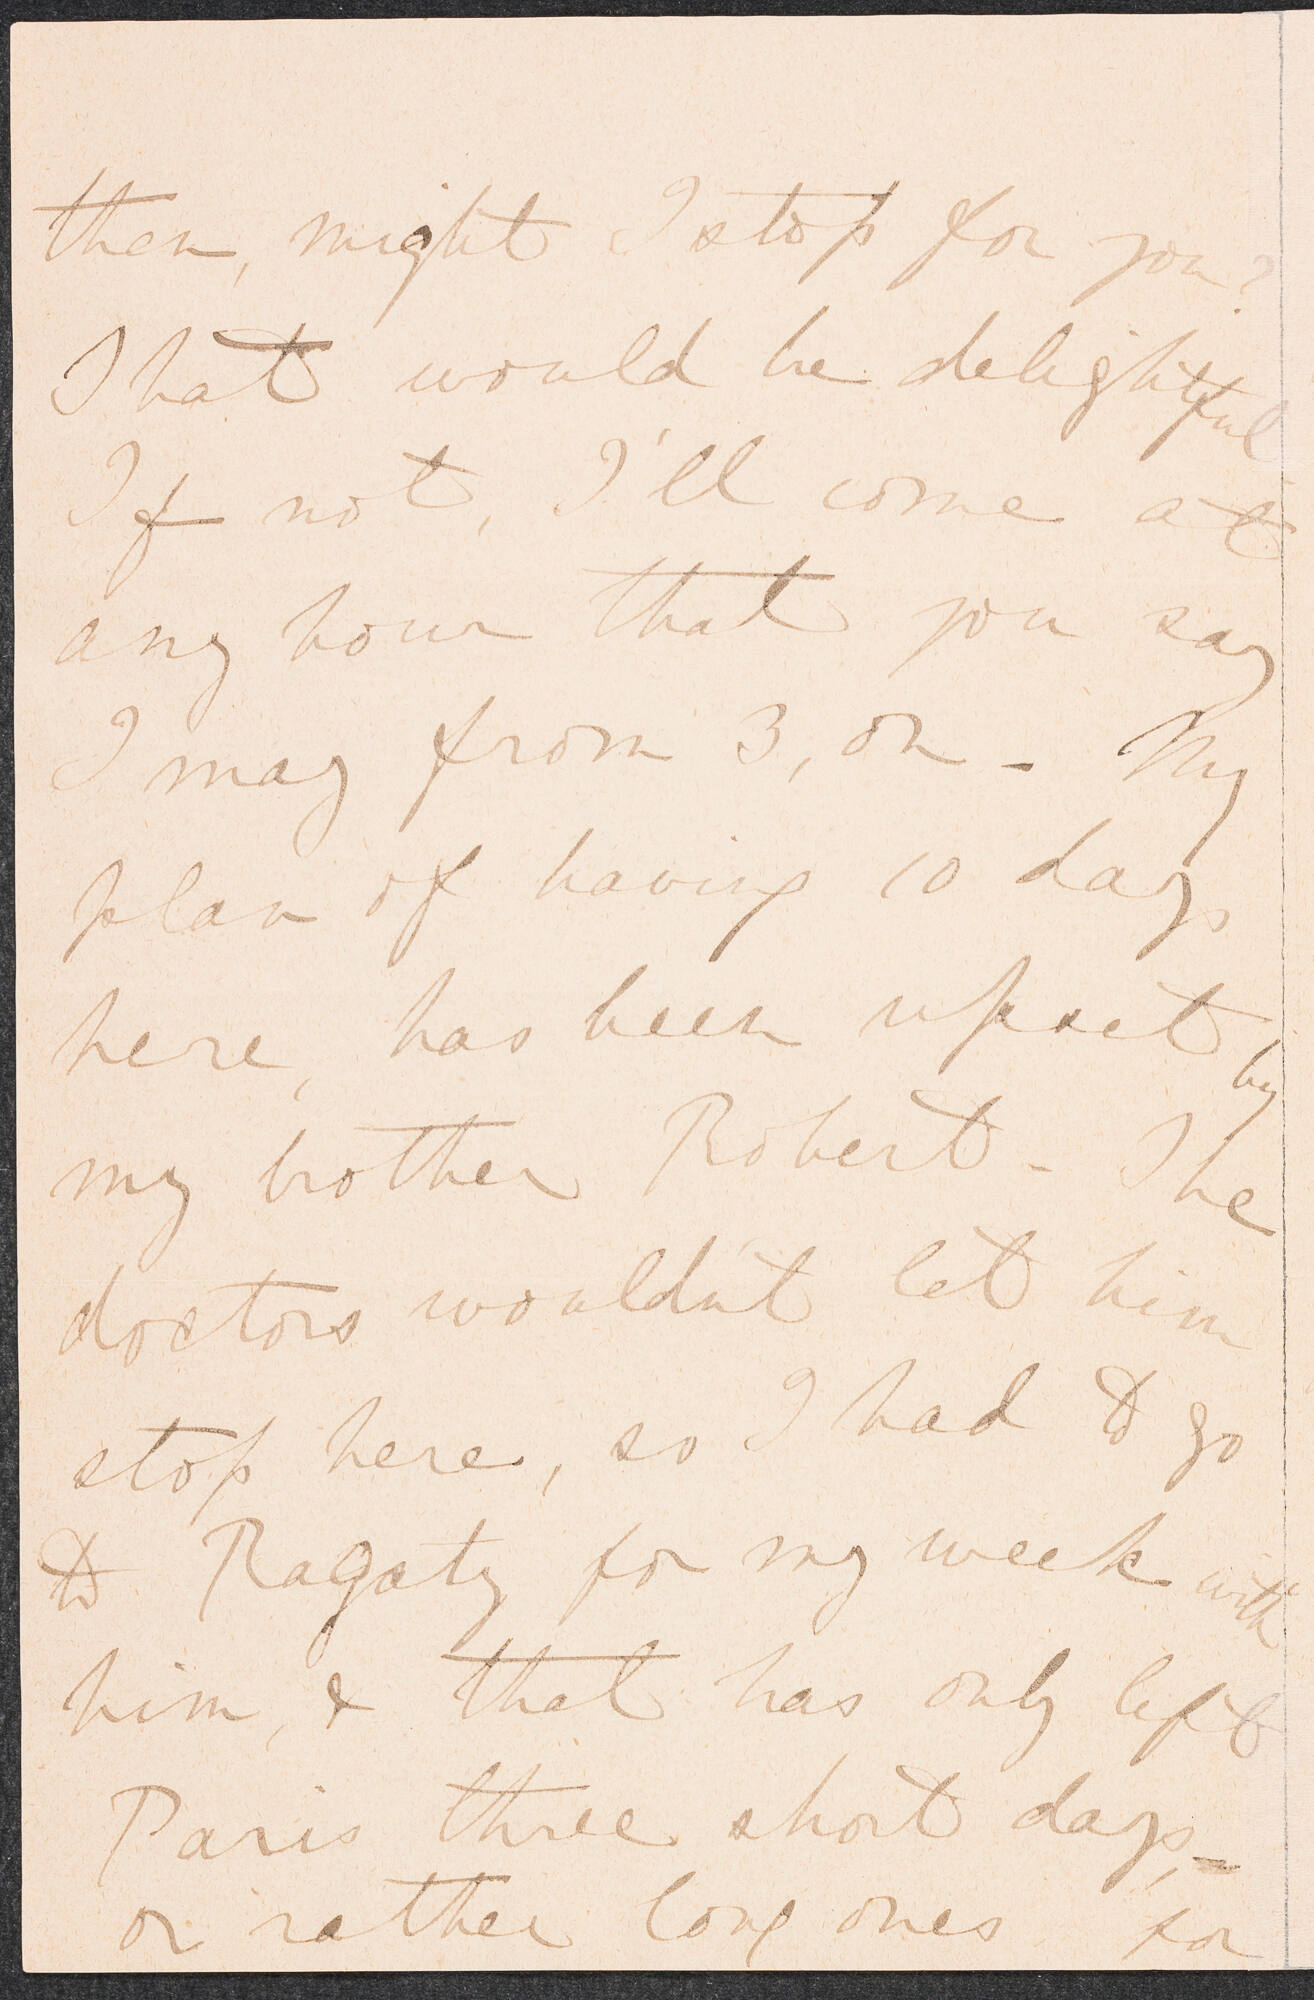 then, might I stop for you?
That would be delightful
If not, I'll come at
any hour that you say
I may from 3, on - My
plan of having 10 days
here, has been upset, by
my brother Robert - The
doctors wouldn't let him
stop here, so I had to go
to Ragatz for my week with
him, & that has only left
Paris three short days, -
or rather long ones for